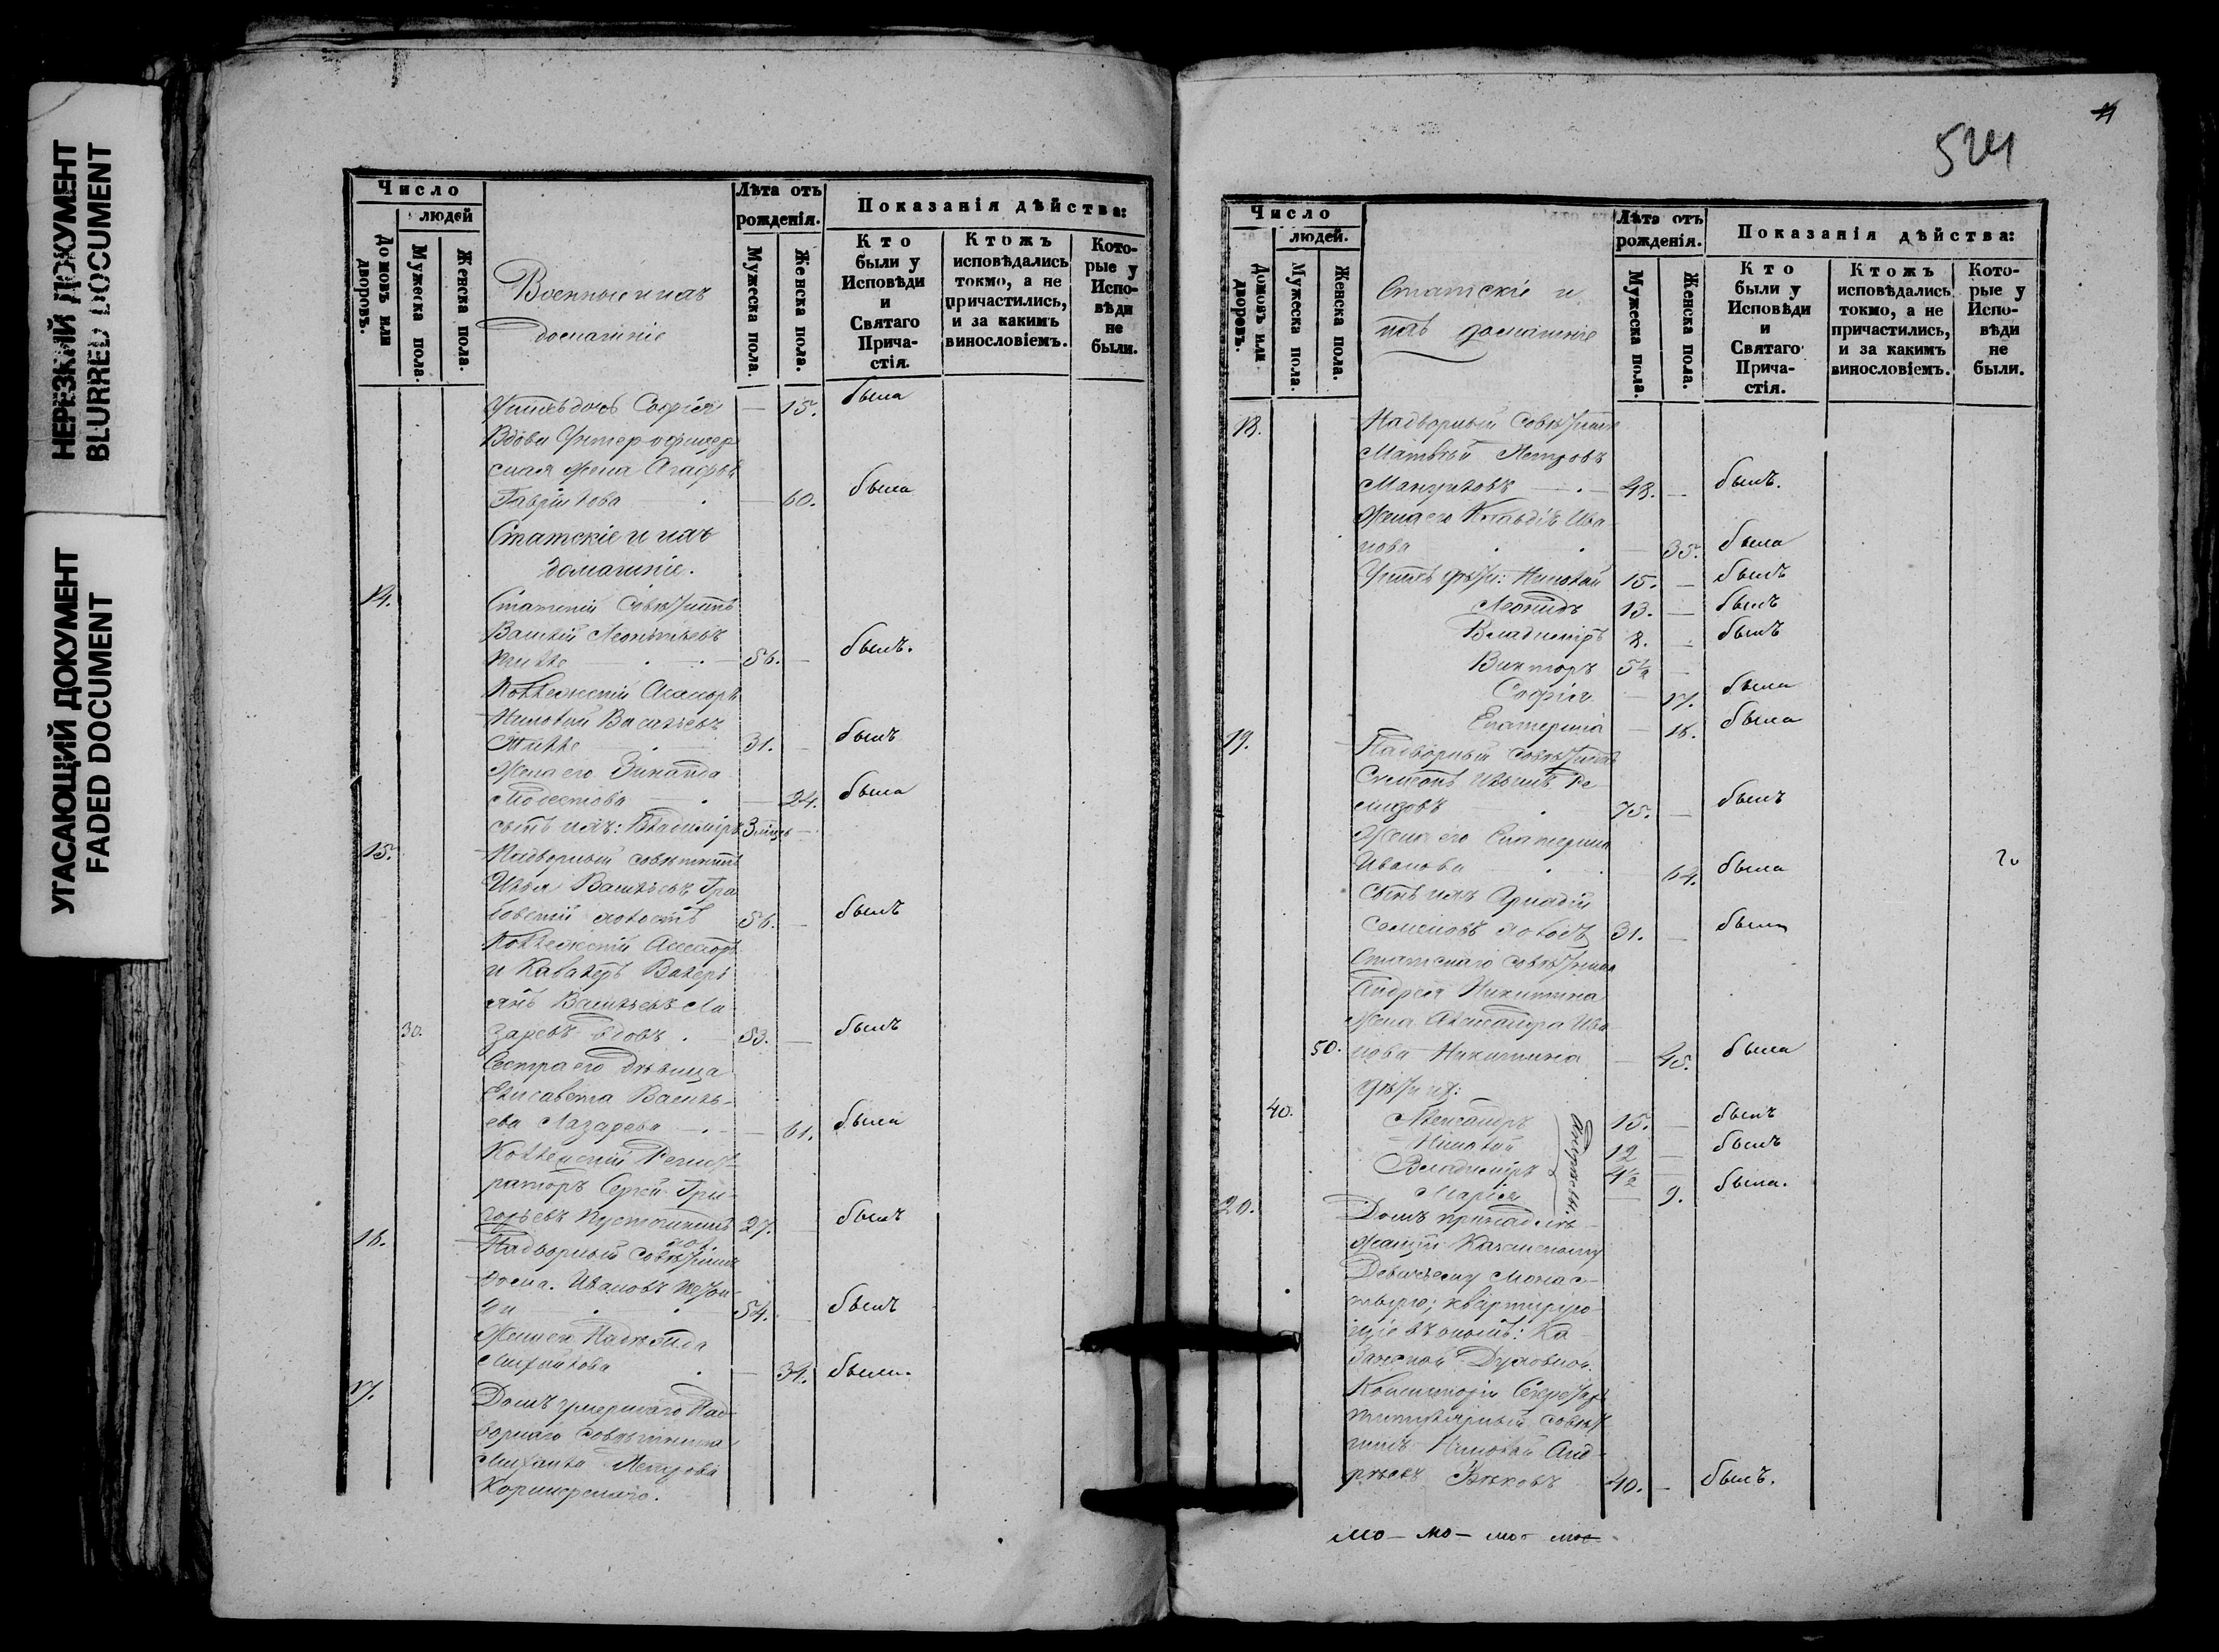 НЕРЕЗКИЙ ДОКУМЕНТ
BLURRED DOCUMENT
УГАСАЮЩИЙ ДОКУМЕНТ
FADED DOCUMENT
Число
людей
Домовъ или дворовъ.
Мужеска пола.
Женска пола.
Военные и ихъ
домашніе
Лѣта отъ рожденія.
Мужеска пола.
Женска пола.
Показанія дѣйства:
Кто были у Исповѣди и Святаго Прича-стія.
Ктожъ исповѣдались токмо, а не причастились, и за какимъ винословіемъ.
Кото-рые у Испо-вѣди не были.
дочь Софія — 15. была
Вдова Унтер-офицер
ская жена Агафья
Гаврилова — 60. была
Статскіе и ихъ
домашніе.
14. Статскій Совѣтникъ
Василій Леонтьевъ
56. — былъ.
Коллежскій Асессоръ
Николай Васильевъ
31. — былъ
Жена его Зинаида
Модестова — 24. была
сынъ ихъ: Владиміръ 3 —
15. Надворный совѣтникъ
Илья Васильевъ Гра
бовскій холостъ 56. — былъ
Коллежскій Асессоръ
и Кавалеръ Валері
янъ Васильевъ Ла
30. заревъ вдовъ 53. — былъ
Сестра его дѣвица
Елисавета Василь-
ева Лазарева — 61. была
Коллежскій Регист-
раторъ Сергей Гри-
горьевъ 27. былъ
хол.
16. Надворный Совѣтникъ
Ивановъ
54. былъ
Жена его Надежда
Михайлова — 34. была.
17. Домъ умершаго Над-
ворнаго совѣтника
Михаила Петрова
Коринфскаго.
11
524
Число
людей.
Домовъ или дворовъ.
Мужеска пола.
Женска пола.
Статскіе и
ихъ домашніе
Лѣта отъ рожденія.
Мужеска пола.
Женска пола.
Показанія дѣйства:
Кто были у Исповѣди и Святаго Прича-стія.
Ктожъ исповѣдались токмо, а не причастились, и за какимъ винословіемъ.
Кото-рые у Испо-вѣди не были.
18. Надворный Совѣтникъ
Матвѣй Петровъ
48. — былъ.
Жена его Клавдія Ива
нова — 35. была
дѣти: Николай 15. — былъ
Леонидъ 13. — былъ
Владиміръ 8. — былъ
Викторъ 5½ —
Софія — 17. была
Екатерина — 16. была
19. Надворный совѣтникъ
Симеонъ Ильинъ Ре
мизовъ 75. — былъ
Жена его Екатерина
Иванова 64. была
Сынъ ихъ Аркадій
Семеновъ холостъ 31. — былъ
Статскаго совѣтника
Андрея Никитина
жена Александра Ива
50. нова Никитина — 45. была
дѣти ихъ:
40. Александръ 15. — былъ
Николай 12 — былъ
Владиміръ 4½
Марія — 9. была.
Андреевы.
20. Домъ принадле-
жащій Казанскому
Девичьему Монас-
тырю; квартирую-
щіе въ ономъ: Ка-
занской Духовной
Консисторіи Секретарь
титулярный совѣт
никъ Николай Анд-
реевъ 40. — былъ.
мо — мо — мо — мо